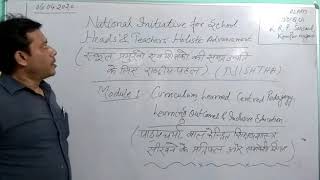 06.04.2020
National Initiative for School
Heads & Teachers Holistic Advancement
(स्कूल प्रमुखों एवं शिक्षकों की समग्र उन्नति
के लिए राष्ट्रीय पहल) (NISHTHA)
Module 1- Curriculum, Learner Centred Pedagogy
Learning Outcomes & Inclusive Education
(पाठ्यचर्या, बाल केन्द्रित शिक्षाशास्त्र
सीखने के प्रतिफल और समावेशी शिक्षा